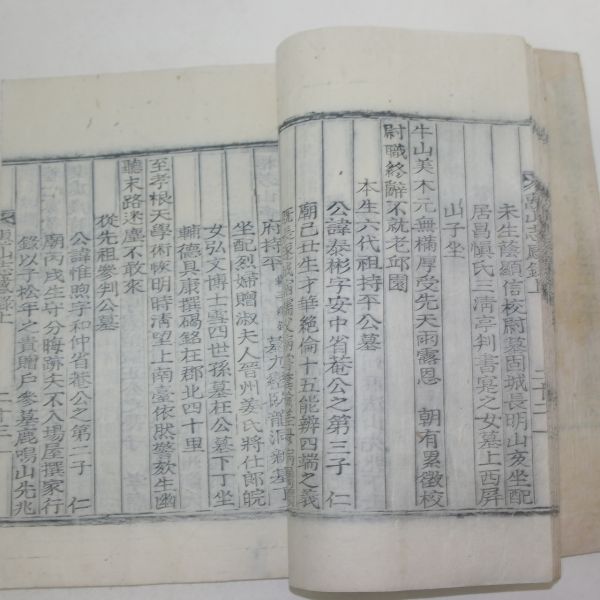 未生蔭顯信校尉墓固城長明山亥坐配
居昌愼氏三淸亭判書宴之女墓上西屛
山子坐
牛山美木元無橫厚受先天雨露恩 朝有累徵校
尉職終辭不就老邱園
本生六代祖持平公墓
公諱泰彬字安中省菴公之第三子 仁
廟己丑生才華絶倫十五能辨四端之義
府持平
坐配烈婦贈淑夫人晉州姜氏將仕郞皖
女弘文博士雲四世孫墓枉公墓下丁坐
輔德具康撰碣銘枉郡北四十里
至孝根天學術恢明時淸望上南臺依然謦欬生幽
聽末路迷塵不敢來
從先祖參判公墓
公諱惟煦字和仲省菴公之第二子 仁
廟丙戌生守分晦跡夫不入場屋撰家行
錄以子松年之貴贈戶參墓鹿鳴山先兆
二十三